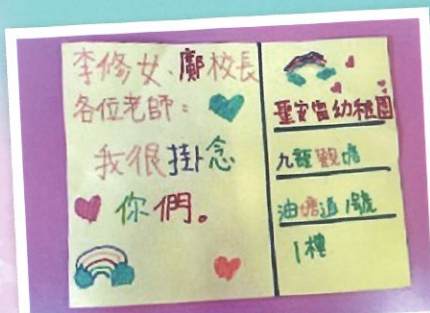 李修女、鄺校長
各位老師：
我很掛念
你們。
聖安當幼稚園
九龍觀塘
油塘道1號
1樓